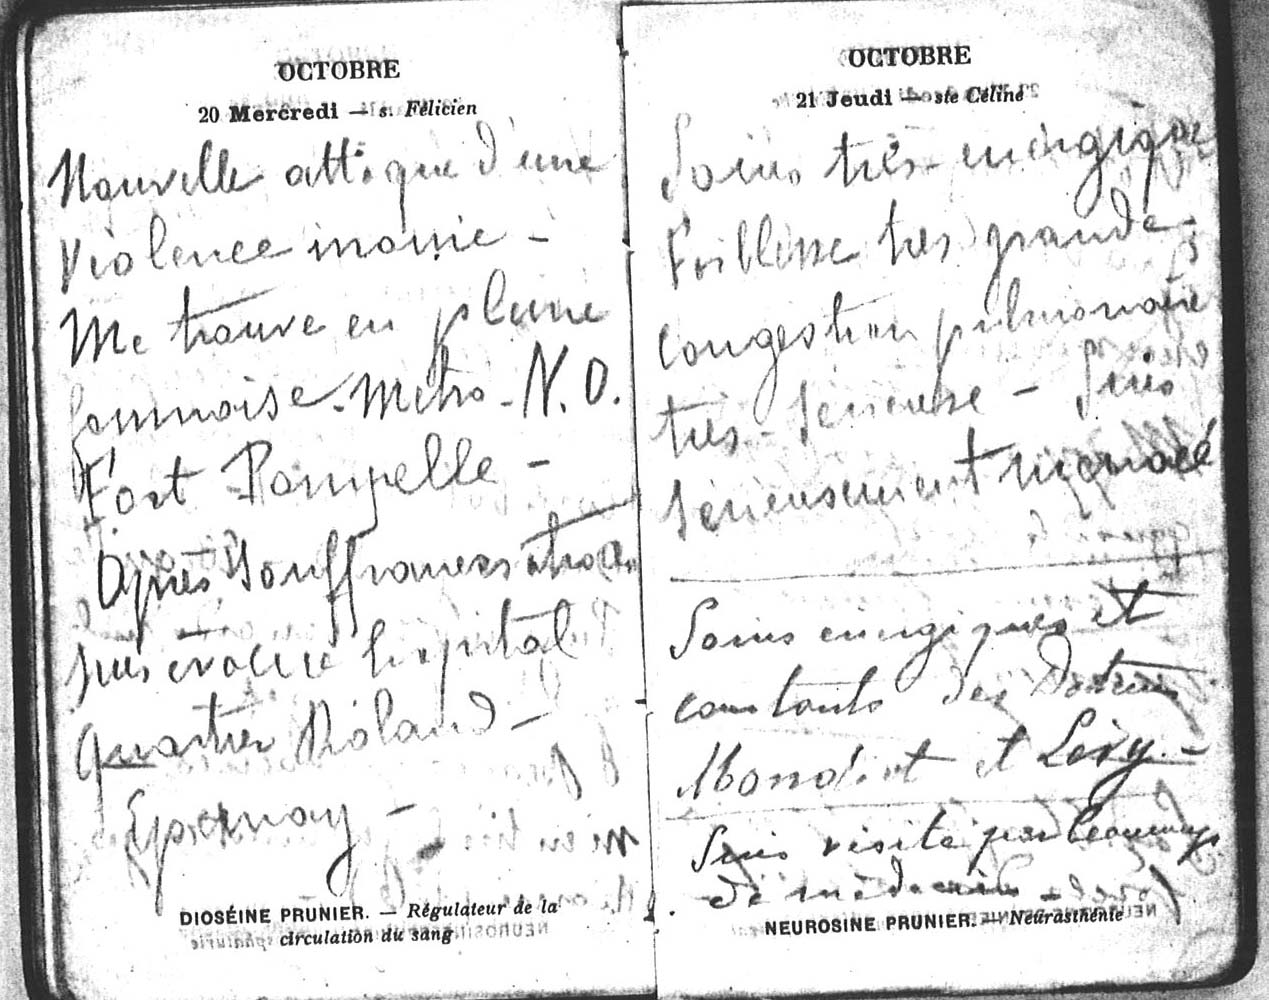 OCTOBRE
20 Mercredi — s. Félicien
Nouvelle attaque d'une
violence inouïe -
Me trouve en pleine
fournaise - Métro - N. O.
Fort Pompelle -
Après Souffrances
suis évacué hopital
quartier Roland -
Epernay -
DIOSÉINE PRUNIER. — Régulateur de la
circulation du sang
OCTOBRE
21 Jeudi — ste Céline
Soins très énergique
Faiblesse très grande -
congestion pulmonaire
très - sérieuse - Suis
sérieusement menacé
Soins energiques et
constants des Docteurs
et Levy. -
Suis visité par beaucoup
de médecins -
NEUROSINE PRUNIER. — Neurasthénie